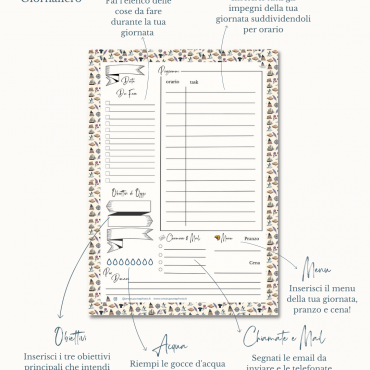 Giornaliero
Fai l'elenco delle
cose da fare
durante la tua
giornata
impegni della tua
giornata suddividendoli
per orario
Data
Programma
orario task
Da Fare
Obiettivi di Oggi
Chiamate & Mail
Menu
Pranzo
Cena
Menu
Inserisci il menu
della tua giornata,
pranzo e cena!
Obiettivi
Inserisci i tre obiettivi
principali che intendi
Acqua
Riempi le gocce d'acqua
Chiamate e Mail
Segnati le email da
inviare e le telefonate